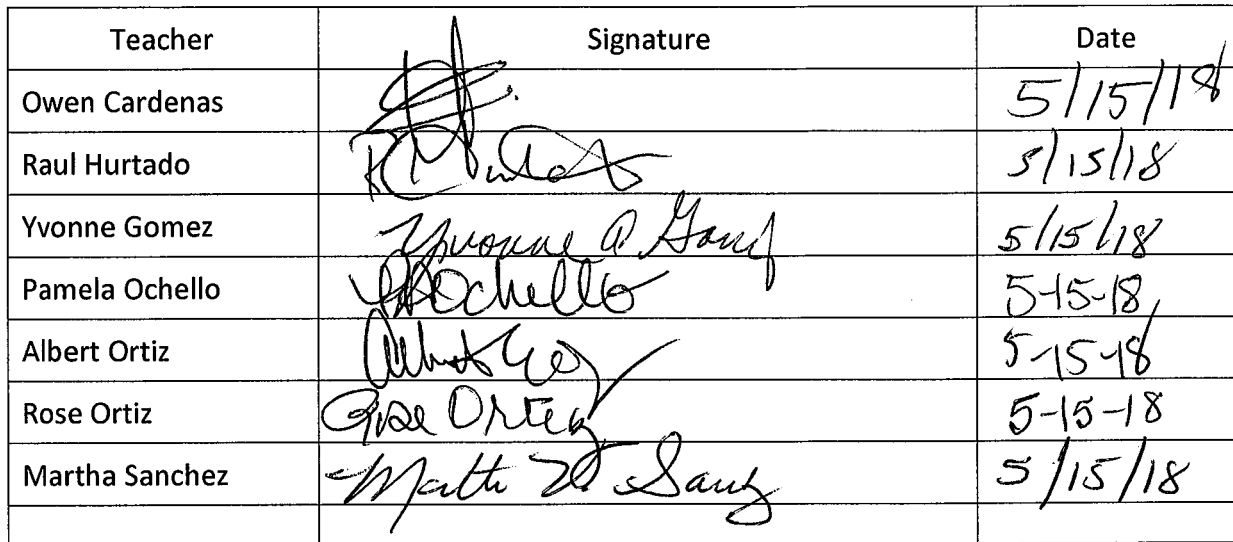 Teacher Signature Date
Owen Cardenas 5/15/18
Raul Hurtado 5/15/18
Yvonne Gomez Yvonne 5/15/18
Pamela Ochello Ochello 5-15-18
Albert Ortiz 5-15-18
Rose Ortiz Rose Ortiz 5-15-18
Martha Sanchez 5/15/18